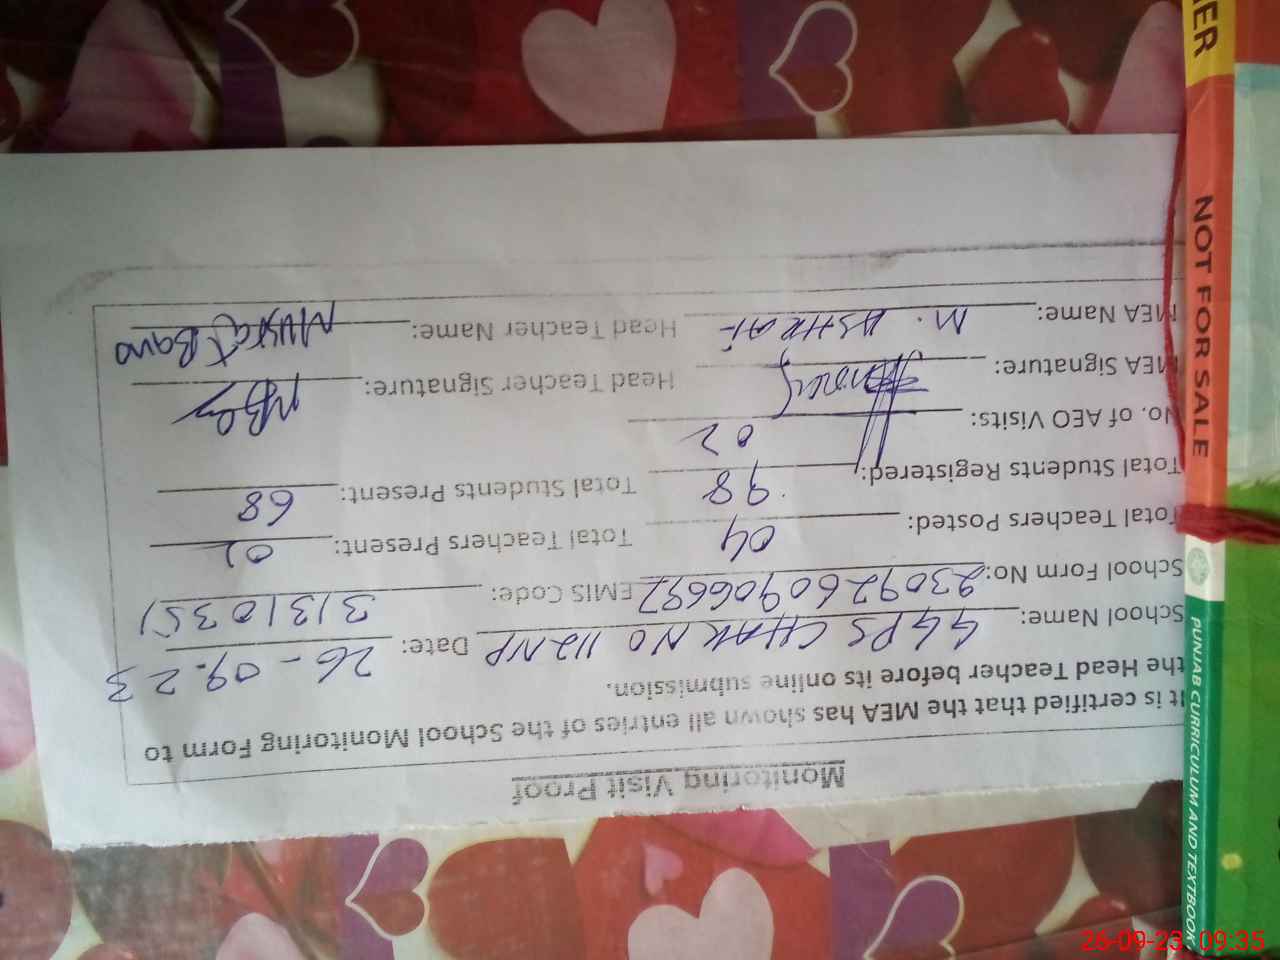 Monitoring Visit Proof
It is certified that the MEA has shown all entries of the School Monitoring Form to
the Head Teacher before its online submission.
School Name: GGPS CHAK NO 112NP Date: 26-09.23
School Form No: 2309260906692 EMIS Code: 31310351
Total Teachers Posted: 04 Total Teachers Present: 02
Total Students Registered: 98 Total Students Present: 68
No. of AEO Visits: 02
MEA Signature: Head Teacher Signature:
MEA Name: M. ASHRAF Head Teacher Name: Bano
NOT FOR SALE
PUNJAB CURRICULUM AND TEXTBOOK
26-09-23 09:35